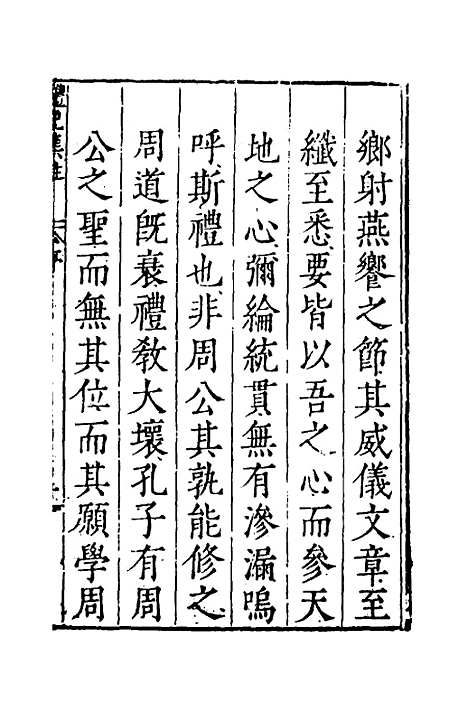 鄉射燕饗之節其威儀文章至
纖至悉要皆以吾之心而參天
地之心彌綸統貫無有滲漏嗚
呼斯禮也非周公其孰能修之
周道旣衰禮敎大壞孔子有周
公之聖而無其位而其願學周
禮記集註